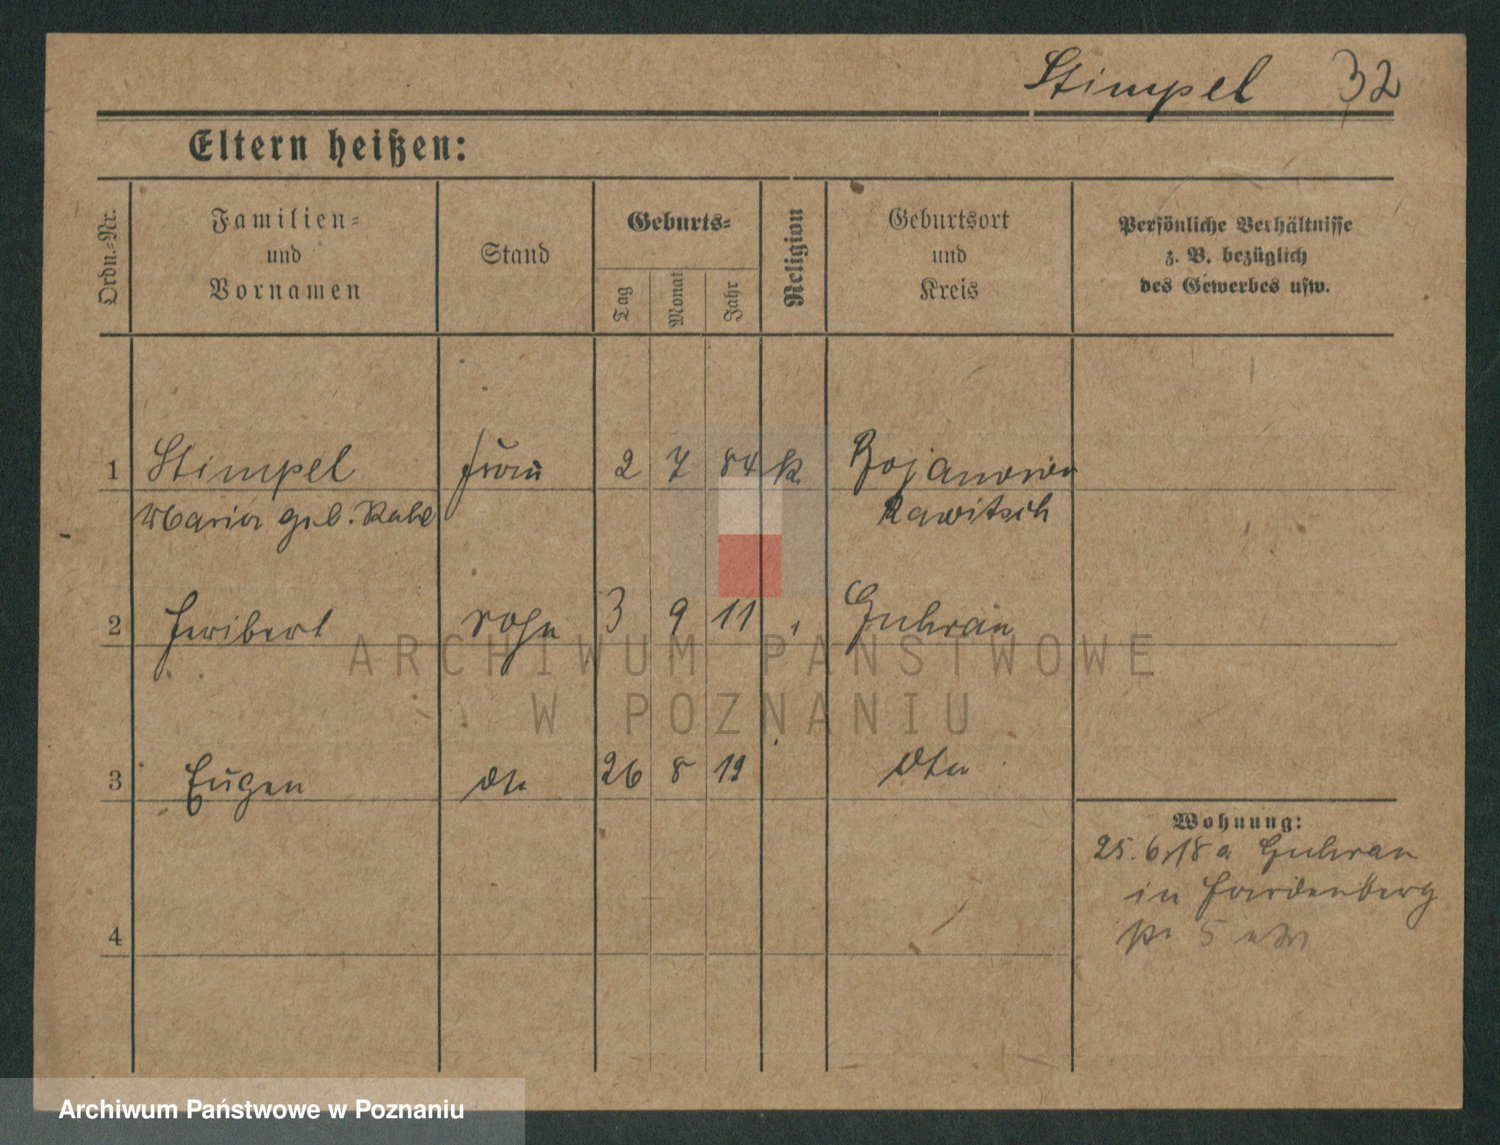 Stimpel 32
Eltern heißen:
Ordn.=Nr.
Familien=
und
Vornamen
Stand
Geburts=
Tag
Monat
Jahr
Religion
Geburtsort
und
Kreis
Persönliche Verhältnisse
z. B. bezüglich
des Gewerbes usw.
1 Stimpel Frau 2 7 84 k. Bojanowo
Maria geb. Rawitsch
2 Heribert Sohn 3 9 11 Guhrau
3 Eugen dto 26 8 12 dto
Wohnung:
25.6.18 a Guhrau
in Hardenberg
4
ARCHIWUM PAŃSTWOWE
W POZNANIU
Archiwum Państwowe w Poznaniu